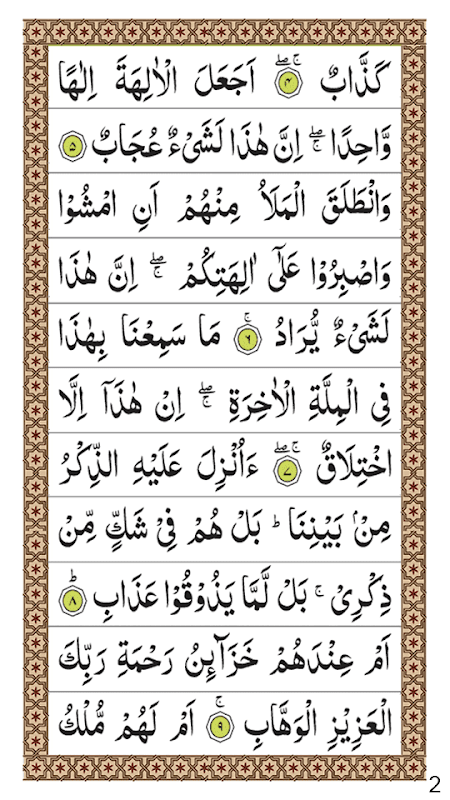 كَذَّابٌ ۖۚ ﴿۴﴾ اَجَعَلَ الْاٰلِهَةَ اِلٰهًا
وَّاحِدًا ۖۚ اِنَّ هٰذَا لَشَىْءٌ عُجَابٌ ﴿۵﴾
وَانْطَلَقَ الْمَلَاُ مِنْهُمْ اَنِ امْشُوْا
وَاصْبِرُوْا عَلٰٓى اٰلِهَتِكُمْ ۖۚ اِنَّ هٰذَا
لَشَىْءٌ يُّرَادُ ۚ ﴿۶﴾ مَا سَمِعْنَا بِهٰذَا
فِى الْمِلَّةِ الْاٰخِرَةِ ۖۚ اِنْ هٰذَاۤ اِلَّا
اخْتِلَاقٌ ۖۚ ﴿۷﴾ ءَاُنْزِلَ عَلَيْهِ الذِّكْرُ
مِنْۢ بَيْنِنَا ؕ بَلْ هُمْ فِىْ شَكٍّ مِّنْ
ذِكْرِىْ ۚ بَلْ لَّمَّا يَذُوْقُوْا عَذَابِ ؕ ﴿۸﴾
اَمْ عِنْدَهُمْ خَزَآئِنُ رَحْمَةِ رَبِّكَ
الْعَزِيْزِ الْوَهَّابِ ۚ ﴿۹﴾ اَمْ لَهُمْ مُّلْكُ
2